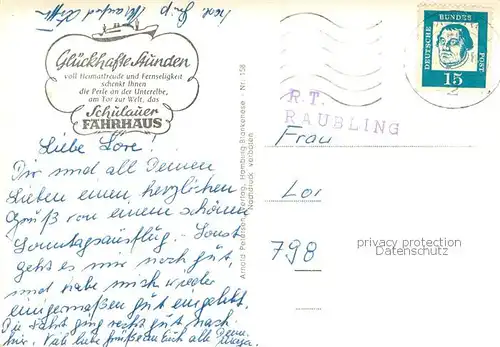 Glückhafte Stunden
voll Heimatfreude und Fernseligkeit
schenkt Ihnen
die Perle an der Unterelbe,
am Tor zur Welt, das
Schulauer
FÄHRHAUS
Liebe Lore!
Dir und all Deinen
Lieben einen herzlichen
Gruß von einem schönen
Sonntagsausflug. Sonst
geht es mir noch gut,
und habe mich wieder
einigermaßen gut eingelebt.
Die Fahrt ging recht gut nach
hier. Viele liebe Grüße an Euch alle
Arnold Petersen, Verlag, Hamburg-Blankenese Nr. 158
Nachdruck verboten
DEUTSCHE BUNDESPOST
15
R.T.
RAUBLING
Frau
Lor
798
privacy protection
Datenschutz